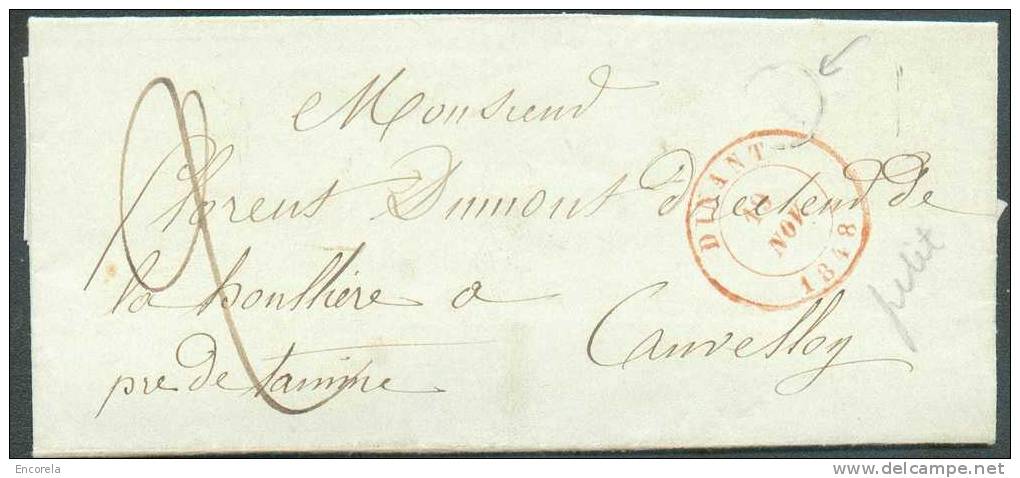 Monsieur
Florent Dumont directeur de
la houllière a Auvelloy
pre de tamine
DINANT
19
NOV
1848
petit
Encorela
delcampe.net